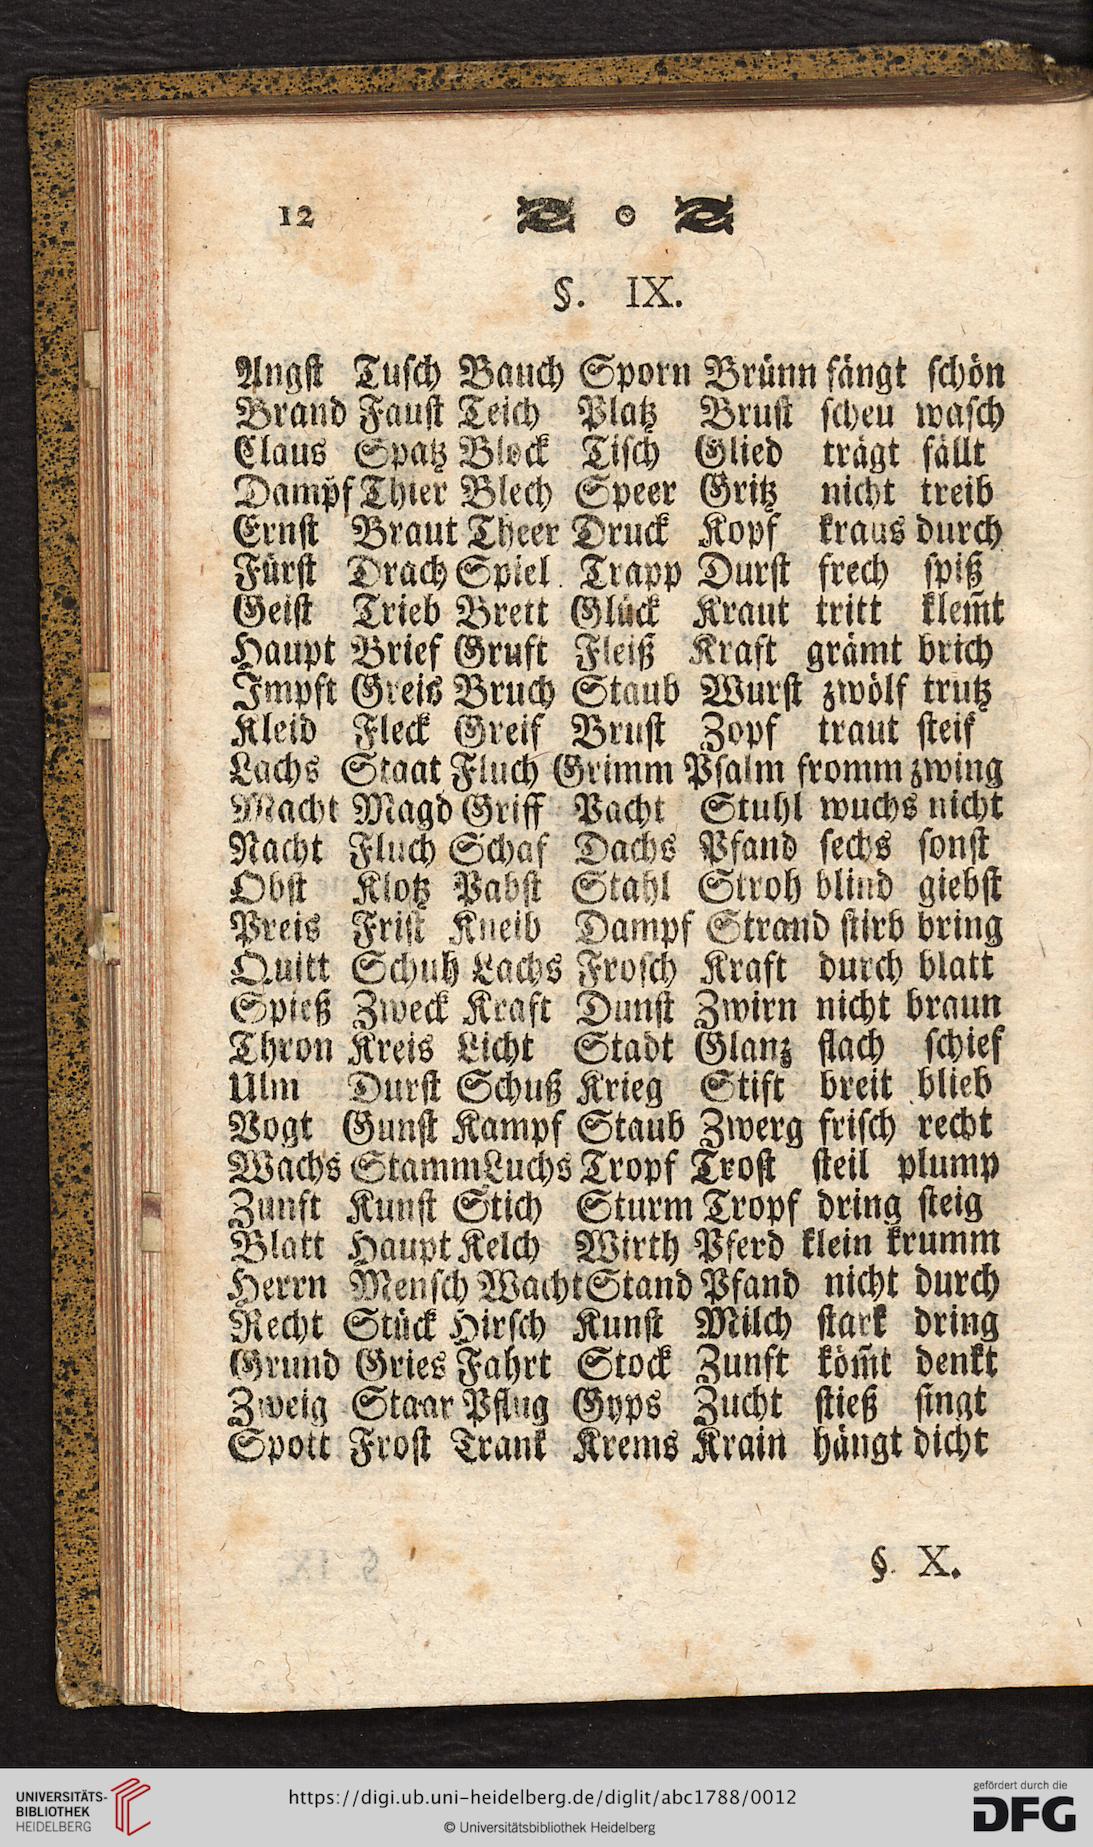 12
§. IX.
Angst Tusch Bauch Sporn Brünn fängt schön
Brand Faust Teich Platz Brust scheu wasch
Claus Spatz Block Tisch Glied trägt fällt
Dampf Thier Blech Speer Gritz nicht treib
Ernst Braut Theer Druck Kopf kraus durch
Fürst Drach Spiel Trapp Durst frech spiß
Geist Trieb Brett Glück Kraut tritt klem̄t
Haupt Brief Gruft Fleiß Kraft grämt brich
Impft Greis Bruch Staub Wurst zwölf trutz
Kleid Fleck Greif Brust Zopf traut steif
Lachs Staat Fluch Grimm Psalm fromm zwing
Macht Magd Griff Pacht Stuhl wuchs nicht
Nacht Fluch Schaf Dachs Pfand sechs sonst
Obst Klotz Pabst Stahl Stroh blind giebst
Preis Frist Kneib Dampf Strand stirb bring
Quitt Schuh Lachs Frosch Kraft durch blatt
Spieß Zweck Kraft Dunst Zwirn nicht braun
Thron Kreis Licht Stadt Glanz flach schief
Ulm Durst Schuß Krieg Stift breit blieb
Vogt Gunst Kampf Staub Zwerg frisch recht
Wachs Stamm Luchs Tropf Trost steil plump
Zunft Kunst Stich Sturm Tropf dring steig
Blatt Haupt Kelch Wirth Pferd klein krumm
Herrn Mensch Wacht Stand Pfand nicht durch
Recht Stück Hirsch Kunst Milch stark dring
Grund Gries Fahrt Stock Zunft köm̄t denkt
Zweig Staar Pflug Gyps Zucht stieß singt
Spott Frost Trank Krems Krain hängt dicht
§. X.
UNIVERSITÄTS-
BIBLIOTHEK
HEIDELBERG
https://digi.ub.uni-heidelberg.de/diglit/abc1788/0012
© Universitätsbibliothek Heidelberg
gefördert durch die
DFG